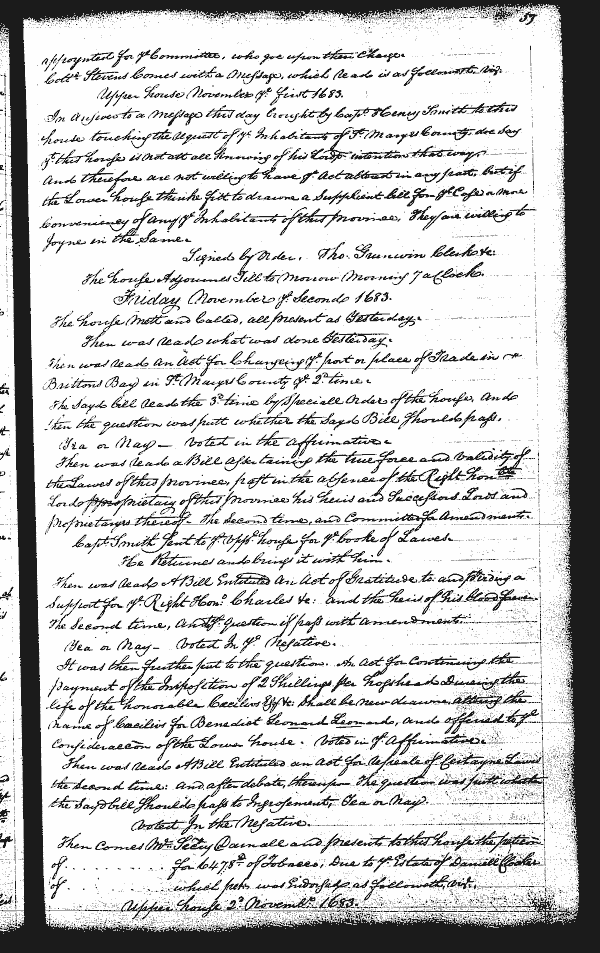 57
appoynted for yᵉ Committee, who goe upon their Charge.
Collᵒ Stevens Comes with a Message, which read is as followeth Viz.
Upper house November yᵉ first 1683.
In Answer to a Message this day brought by Capᵗ Henry Smith to this
house touching the request of yᵉ Inhabitants of Sᵗ Maryes County, doe Say
yᵗ this house is not att all knowing of his Lordᵖˢ intention that way,
And therefore are not willing to have yᵉ Act altered in any part, but if
the Lower house thinke fitt to drawe a Supplient bill for yᵉ Ease & more
Conveniency of any yᵉ Inhabitants of this Province, They are willing to
Joyne in the Same.
Signed by Order. Tho. Grunwin Clerk &c.
The house Adjournes Till to Morrow Morning 7 a Clock.
Friday November yᵉ Second 1683.
The house Mett and Called, all present as Yesterday.
Then was read what was done Yesterday.
Then was read an Act for Changing yᵉ port or place of Trade in
Brittons Bay in Sᵗ Maryes County yᵉ 2ᵈ time.
The Sayd bill read the 3ᵈ time by Speciall Order of the house, And
then the question was putt whether the Sayd Bill Should pass.
Yea or Nay — Voted in the affirmative.
Then was read a Bill Ascertaining the true force and validity of
the Lawes of this Province, past in the absence of the Right Honᵇˡᵉ
Lord proprietary of this Province his heirs and Successors Lords and
proprietarys thereof. The Second time, and Committed for Amendment.
Capᵗ Smith Sent to yᵉ uppʳ house for yᵉ booke of Lawes.
He Returnes and brings it with him.
Then was read A Bill Entituled An Act of Gratitude to and Setling a
Support for yᵉ Right Honᵒ Charles &c: and the heirs of his blood
The Second time, And yᵉ question if pass with amendment.
Yea or Nay — Voted In yᵉ Negative.
It was then further put to the question. An Act for Continuing the
payment of the Imposition of 2 Shillings per hogshead During the
life of the honorable Cecilius Esqʳ &c Shall be new drawne, altring the
name of Caecilius for Benedict Leonard Leonard, and offered to yᵉ
Consideracon of the Lower house. Voted in yᵉ Affirmative.
Then was read A Bill Entituled an Act for Repeale of Certayne Lawes
the Second time: and after debate, thereupon The question was putt whether
the Sayd bill Should pass to Ingrossement, Yea or Nay.
Voted In the Negative.
Then Comes Mʳ Secry Darnall and presents to this house the petition
of . . . . . . . . . for 6478ˡᵇ of Tobacco, Due to yᵉ Estate of Daniell Clocker
of . . . . . . . . . which petn was Endorsed as followeth, vizᵗ.
Upper house 2ᵈ Novembʳ 1683.